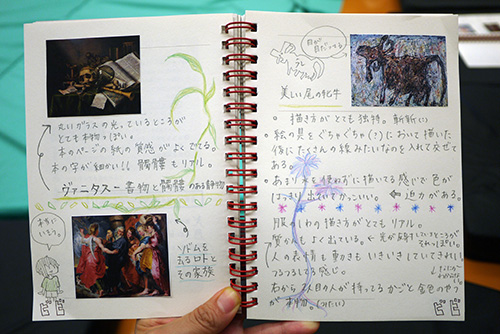 丸いガラスの光っているところが
とても本物っぽい。
本のページの紙の質感がよくでてる。
本の字が細かい!! 髑髏もリアル。
ヴァニタスー書物と髑髏のある静物
本当に
いそう。
ソドムを
去るロトと
その家族
ビビ
目が
目だってる
美しい尾の牝牛
描き方がとても独特。斬新(?)
絵の具をぐちゃぐちゃ(?)において描いた
後にたくさんの線みたいなのを入れて文せ
てある。
あまり を使わずに描いてる感じで色が
はっきり出ていてかっこいい。 ← 迫力がある。
服のしわの描き方がとてもリアル。
質がよく出ている。
人の表情も動きもいきいきしていてきれい
つるつるして感じ。
右から2人目の人が持ってるかごと金色のやつ
が本物。(つたい)
ビビ